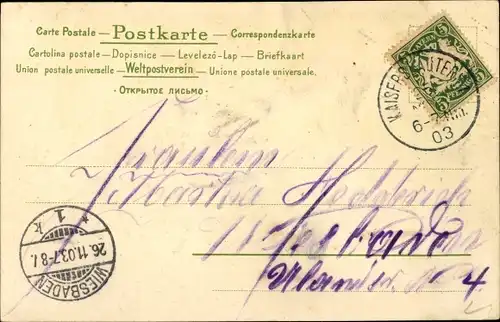 Carte Postale – Postkarte – Correspondenzkarte
Cartolina postale – Dopisnice – Levelező-Lap – Briefkaart
Union postale universelle – Weltpostverein – Unione postale universale.
· ОТКРЫТОЕ ПИСЬМО ·
5
KAISERSLAUTERN
6-7
03
Fräulein
Martha
Wiesbaden
4
WIESBADEN
26.11.03.7-8
* 1 k